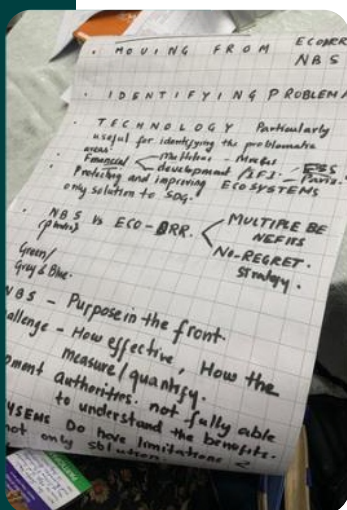 · MOVING FROM ECODRR
NBS
· IDENTIFYING PROBLEMA
· TECHNOLOGY Particularly
useful for identifying the problematic
areas.
· Financial
development
· Protecting and improving ECOSYSTEMS
only solution to SDG.
· NBS Vs ECO-DRR. MULTIPLE BE
NEFITS
NO-REGRET.
strategy.
Green/
Grey & Blue.
NBS – Purpose in the front
allenge – How effective, How the
measure/quantify.
pment authorities. not fully able
to understand the benefits.
YSEMS DO have limitations
not only solution.